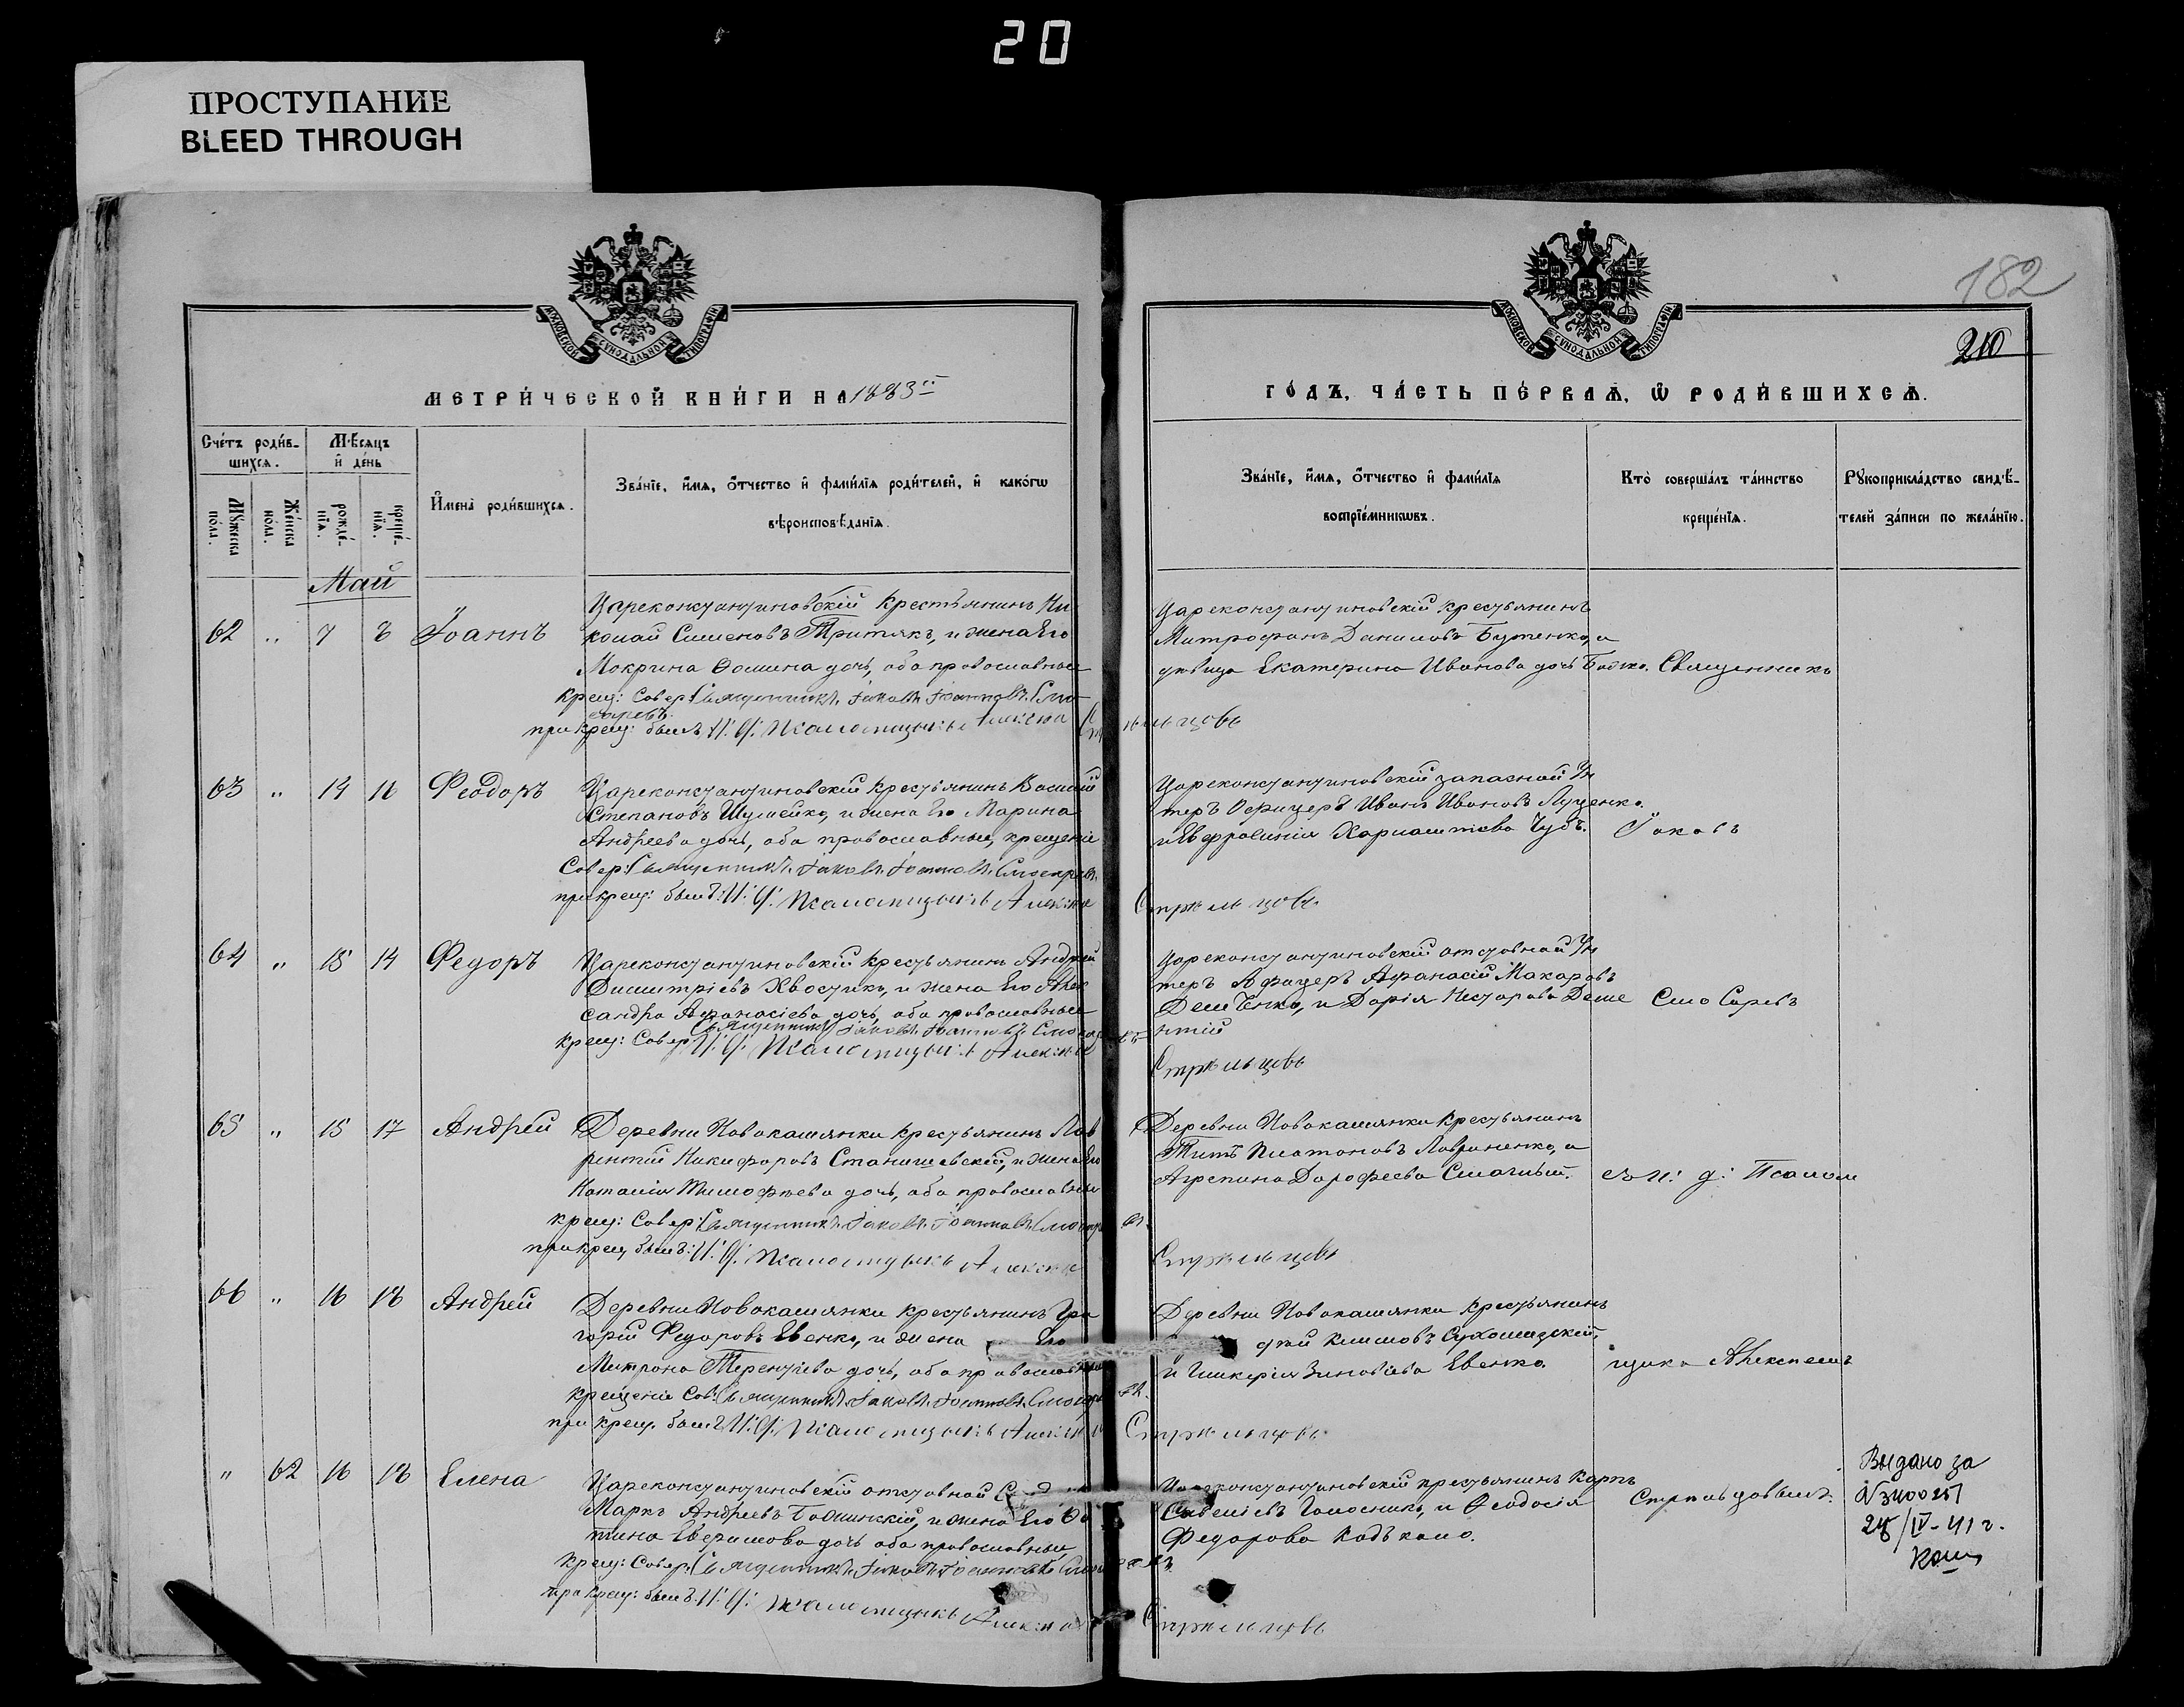 20
ПРОСТУПАНИЕ
BLEED THROUGH
182
210
МОСКОВСКОЙ СУНОДАЛЬНОЙ ТИПОГРАФІИ
МОСКОВСКОЙ СУНОДАЛЬНОЙ ТИПОГРАФІИ
МЕТРИ́ЧЕСКОЙ КНИ́ГИ НА 1883й
ГО́ДЪ, ЧА́СТЬ ПЕ́РВАѦ, Ѡ РОДИ́ВШИХСѦ.
Сче́тъ роди́в-
шихсѧ.
Мѣ́сѧцъ
и҆ де́нь
Мꙋ́жеска по́ла.
Же́нска по́ла.
рожде́-
нїѧ.
креще́-
нїѧ.
И҆мена̀ роди́вшихсѧ.
Зва́нїе, и҆́мѧ, о҆́тчество и҆ фами́лїѧ роди́телей, и҆ како́гѡ
вѣроисповѣ́данїѧ.
Зва́нїе, и҆́мѧ, о҆́тчество и҆ фами́лїѧ
воспрїе́мникѡвъ.
Кто̀ соверша́лъ та́инство
креще́нїѧ.
Рꙋкоприкла́дство свидѣ́-
телей за́писи по жела́нїю.
Май
62 " 7 8 Іоаннъ
Цареконстантиновскій крестьянинъ Ни
колай Симеоновъ Притякъ, и жена Его
Мокрина Фомина дочь, оба православные
крещ: Совер: Священникъ Іаковъ Іоанновъ Смо
саревъ
при крещ: былъ И. Д. Псаломщика Алексѣй Стрѣльцовъ
Цареконстантиновскій крестьянинъ
Митрофанъ Даниловъ Бутенко, и
дѣвица Екатерина Иванова дочь Бабко. Священникъ
63 " 14 16 Феодоръ
Цареконстантиновскій крестьянинъ Василій
Степановъ Шумейко, и жена Его Марина
Андреева дочь, оба православные, крещеніе
Совер: Священникъ Іаковъ Іоанновъ Смосаревъ
при крещ: былъ: И. Д. Псаломщика Алексѣй Стрѣльцовъ
Цареконстантиновскій запасной Ун
теръ Офицеръ Иванъ Ивановъ Луценко,
и Евфросинія Харлампіева Чубъ. Іаковъ
64 " 15 17 Федоръ
Цареконстантиновскій крестьянинъ Андрей
Димитріевъ Хвостикъ, и жена Его Алек
сандра Афанасіева дочь, оба православные
крещ: Совер: Священникъ Іаковъ Іоанновъ Смосаревъ
И. Д. Псаломщика Алексѣй Стрѣльцовъ
Цареконстантиновскій отставной Ун
теръ Офицеръ Афанасій Макаровъ
Демченко, и Дарія Несторова Деме Смо Саревъ
нтій
65 " 15 17 Андрей
Деревни Новокамянки крестьянинъ Лав
рентій Никифоровъ Станишевскій, и жена Его
Наталія Тимофѣева дочь, оба православные
крещ: Совер: Священникъ Іаковъ Іоанновъ Смосаревъ
при крещ былъ: И. Д. Псаломщика Алексѣй Стрѣльцовъ
Деревни Новокамянки крестьянинъ
Титъ Платоновъ Лавриненко, и
Агрепина Дорофеева съ и: д: Псалом
66 " 16 18 Андрей
Деревни Новокамянки крестьянинъ Гри
горій Федоровъ Евенко, и жена Его
Матрона Терентіева дочь, оба православные
крещеніе Сов: Священникъ Іаковъ Іоанновъ Смосаревъ
при крещ. былъ И. Д. Псаломщика Алексѣй Стрѣльцовъ
Деревни Новокамянки крестьянинъ
Климовъ Сухомлускій,
и Гликерія Зиновіева Евенко. щика Алексѣемъ
" 62 16 18 Елена
Цареконстантиновскій отставной
Маркъ Андреевъ и жена Его Фо
тина Ефимова дочь оба православные
крещ: Совер: Священникъ Іаковъ Іоанновъ Смосаревъ
при крещ: былъ: И. Д. Псаломщика Алексѣй Стрѣльцовъ
Цареконстантиновскій крестьянинъ Карпъ
Савеліевъ Голосникъ, и Феодосія Стрѣльцовымъ.
Федорова
Выдано за
28/IV-41 г.